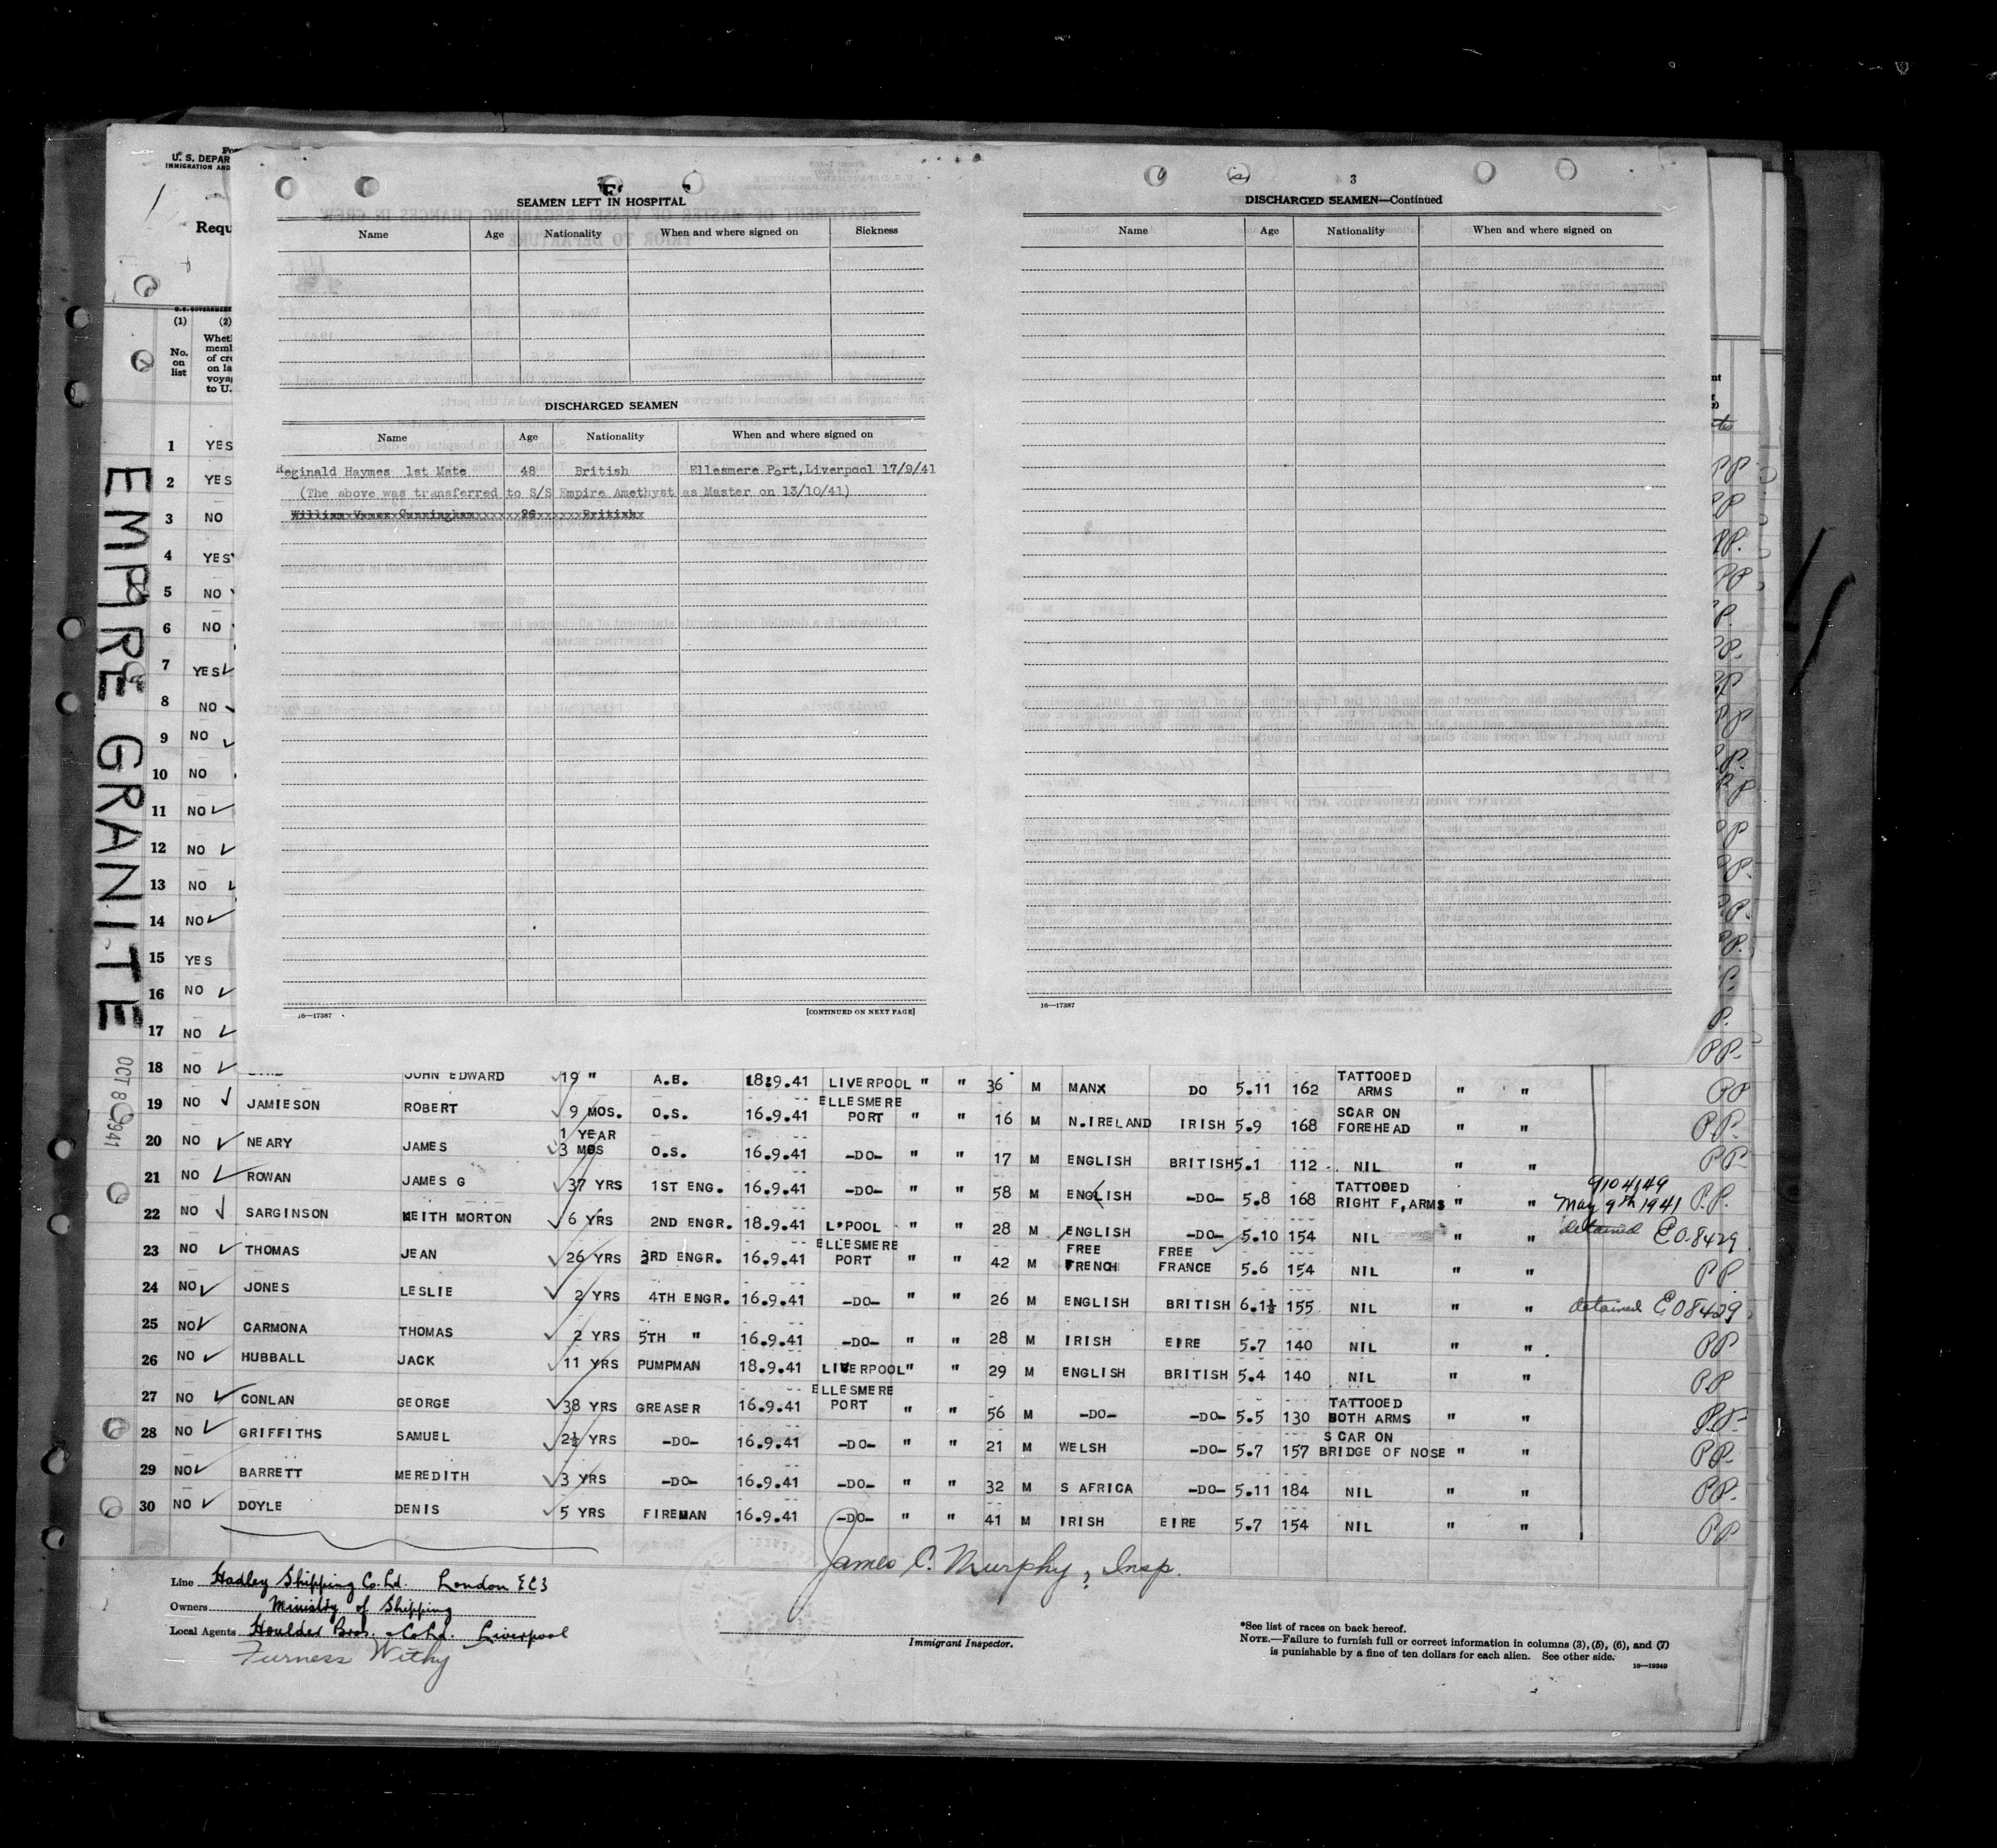 U. S. DEPAR
IMMIGRATION AND
Requ
(1) (2)
No. on list
Whet
memb
of cre
on la
voya
to U.
EMPIRE GRANITE
SEAMEN LEFT IN HOSPITAL
Name Age Nationality When and where signed on Sickness
DISCHARGED SEAMEN
Name Age Nationality When and where signed on
Reginald Haymes 1st Mate 48 British Ellesmere Port,Liverpool 17/9/41
(The above was transferred to S/S Empire Amethyst as Master on 13/10/41)
16—17387 [CONTINUED ON NEXT PAGE]
3
DISCHARGED SEAMEN—Continued
Name Age Nationality When and where signed on
16—17387
1 YES
2 YES
3 NO
4 YES
5 NO
6 NO
7 YES
8 NO
9 NO
10 NO
11 NO
12 NO
13 NO
14 NO
15 YES
16 NO
17 NO
18 NO JOHN EDWARD 19 " A.B. 18.9.41 LIVERPOOL " " 36 M MANX DO 5.11 162 TATTOOED ARMS " " PP
19 NO JAMIESON ROBERT 9 MOS. O.S. 16.9.41 ELLESMERE PORT " " 16 M N.IRELAND IRISH 5.9 168 SCAR ON FOREHEAD " " PP.
20 NO NEARY JAMES 1 YEAR 3 MOS O.S. 16.9.41 -DO- " " 17 M ENGLISH BRITISH 5.1 112 NIL " " PP
21 NO ROWAN JAMES G 37 YRS 1ST ENG. 16.9.41 -DO- " " 58 M ENGLISH -DO- 5.8 168 TATTOOED RIGHT F,ARMS " " 9104149 May 9th 1941 P.P.
22 NO SARGINSON KEITH MORTON 6 YRS 2ND ENGR. 18.9.41 L'POOL " " 28 M ENGLISH -DO- 5.10 154 NIL " " detained EO.8429
23 NO THOMAS JEAN 26 YRS 3RD ENGR. 16.9.41 ELLESMERE PORT " " 42 M FREE FRENCH FREE FRANCE 5.6 154 NIL " " PP
24 NO JONES LESLIE 2 YRS 4TH ENGR. 16.9.41 -DO- " " 26 M ENGLISH BRITISH 6.1½ 155 NIL " " detained EO8429
25 NO CARMONA THOMAS 2 YRS 5TH " 16.9.41 -DO- " " 28 M IRISH EIRE 5.7 140 NIL " " PP
26 NO HUBBALL JACK 11 YRS PUMPMAN 18.9.41 LIVERPOOL " " 29 M ENGLISH BRITISH 5.4 140 NIL " " PP
27 NO CONLAN GEORGE 38 YRS GREASER 16.9.41 ELLESMERE PORT " " 56 M -DO- -DO- 5.5 130 TATTOOED BOTH ARMS " " PP-
28 NO GRIFFITHS SAMUEL 2½ YRS -DO- 16.9.41 -DO- " " 21 M WELSH -DO- 5.7 157 SCAR ON BRIDGE OF NOSE " " PP-
29 NO BARRETT MEREDITH 3 YRS -DO- 16.9.41 -DO- " " 32 M S AFRICA -DO- 5.11 184 NIL " " PP-
30 NO DOYLE DENIS 5 YRS FIREMAN 16.9.41 -DO- " " 41 M IRISH EIRE 5.7 154 NIL " " PP
James C. Murphy, Insp.
Immigrant Inspector.
Line Hadley Shipping Co. Ld. London EC3
Owners Ministry of Shipping
Local Agents Houlder Bros. & Co. Ld. Liverpool
Furness Withy
*See list of races on back hereof.
NOTE.—Failure to furnish full or correct information in columns (3), (5), (6), and (7)
is punishable by a fine of ten dollars for each alien. See other side.
16—19349